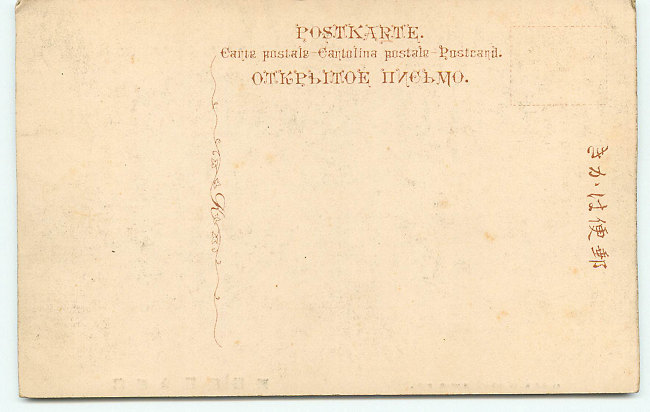 POSTKARTE.
Carte postale–Cartolina postale–Postcard.
ОТКРЫТОЕ ПИСЬМО.
きかは便郵
R